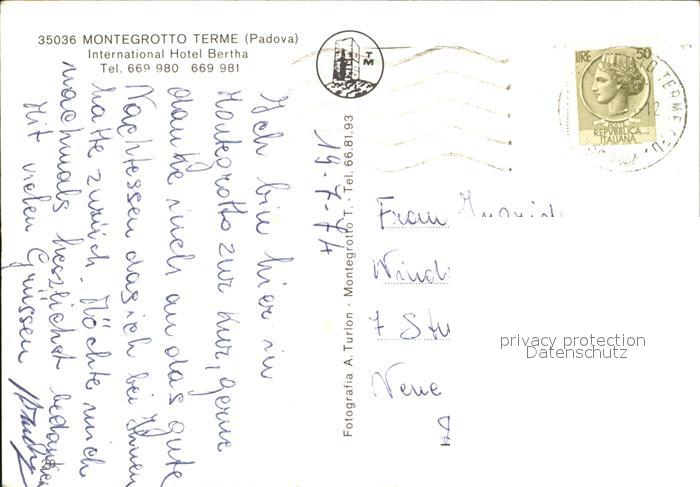 35036 MONTEGROTTO TERME (Padova)
International Hotel Bertha
Tel. 669 980 669 981
TM
LIRE 50
REPVBBLICA
ITALIANA
TERME
19-7-74
Ich bin hier in
Montegrotto zur Kur, gerne
danke mich an das gute
Nachtessen das ich bei Ihnen
hatte zurück. Möchte mich
nochmals herzlichst bedanken
Mit vielen Grüssen
Fotografia A. Turlon - Montegrotto T. - Tel. 66.81.93
Frau
Wind
7 Stu
Neue
privacy protection
Datenschutz